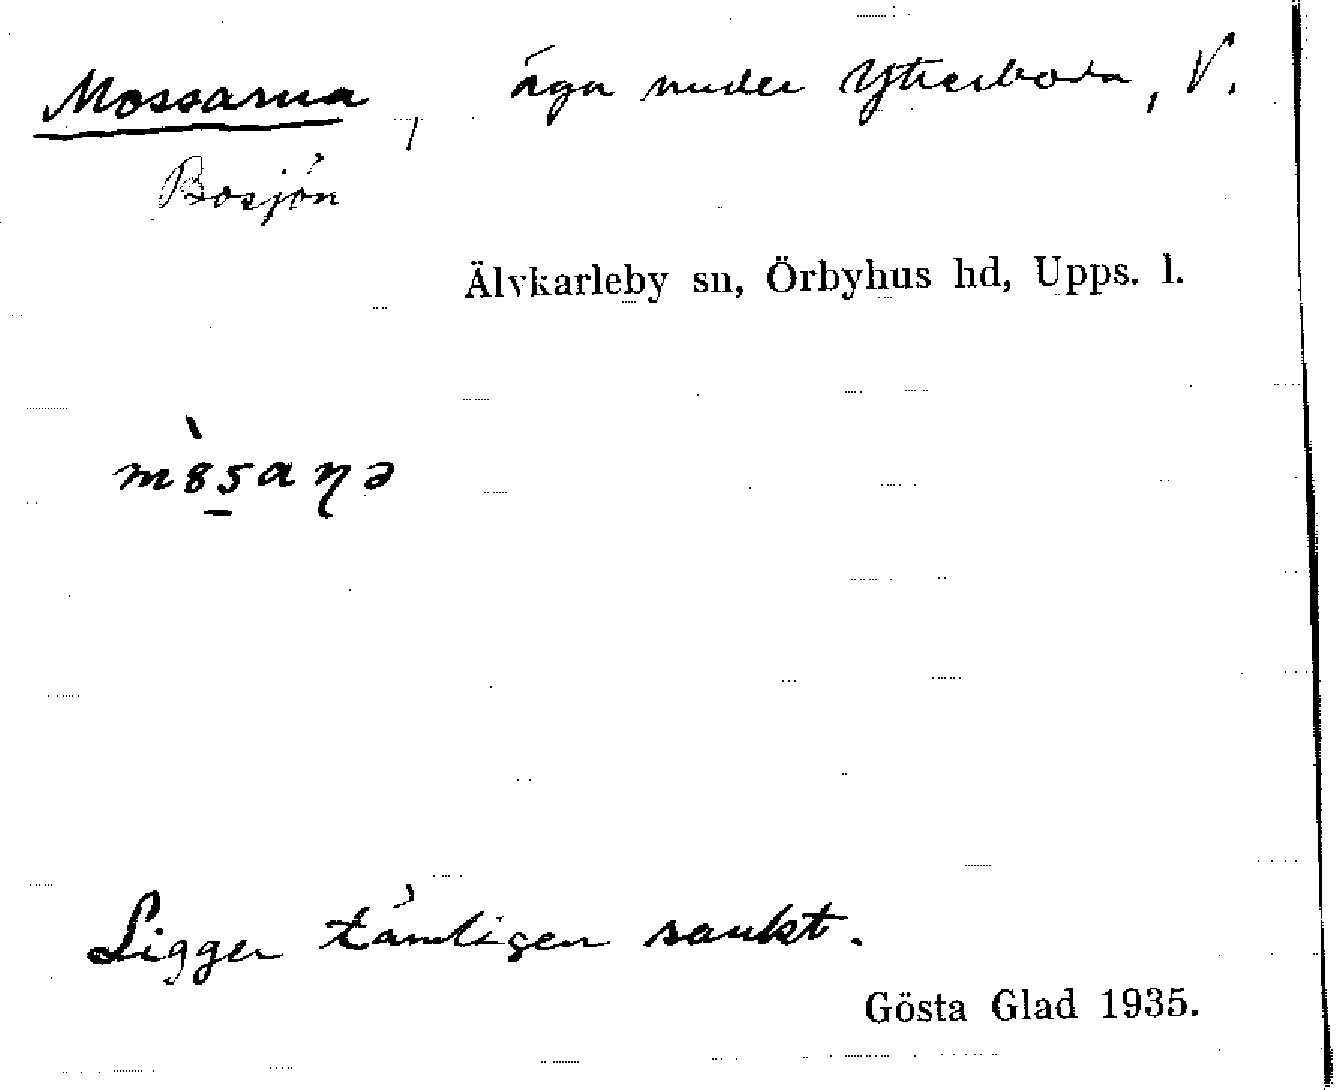 Mossarna, äga under Ytterboda, V.
Bosjön
Älvkarleby sn, Örbyhus hd, Upps. l.
Ligger tämligen sankt.
Gösta Glad 1935.